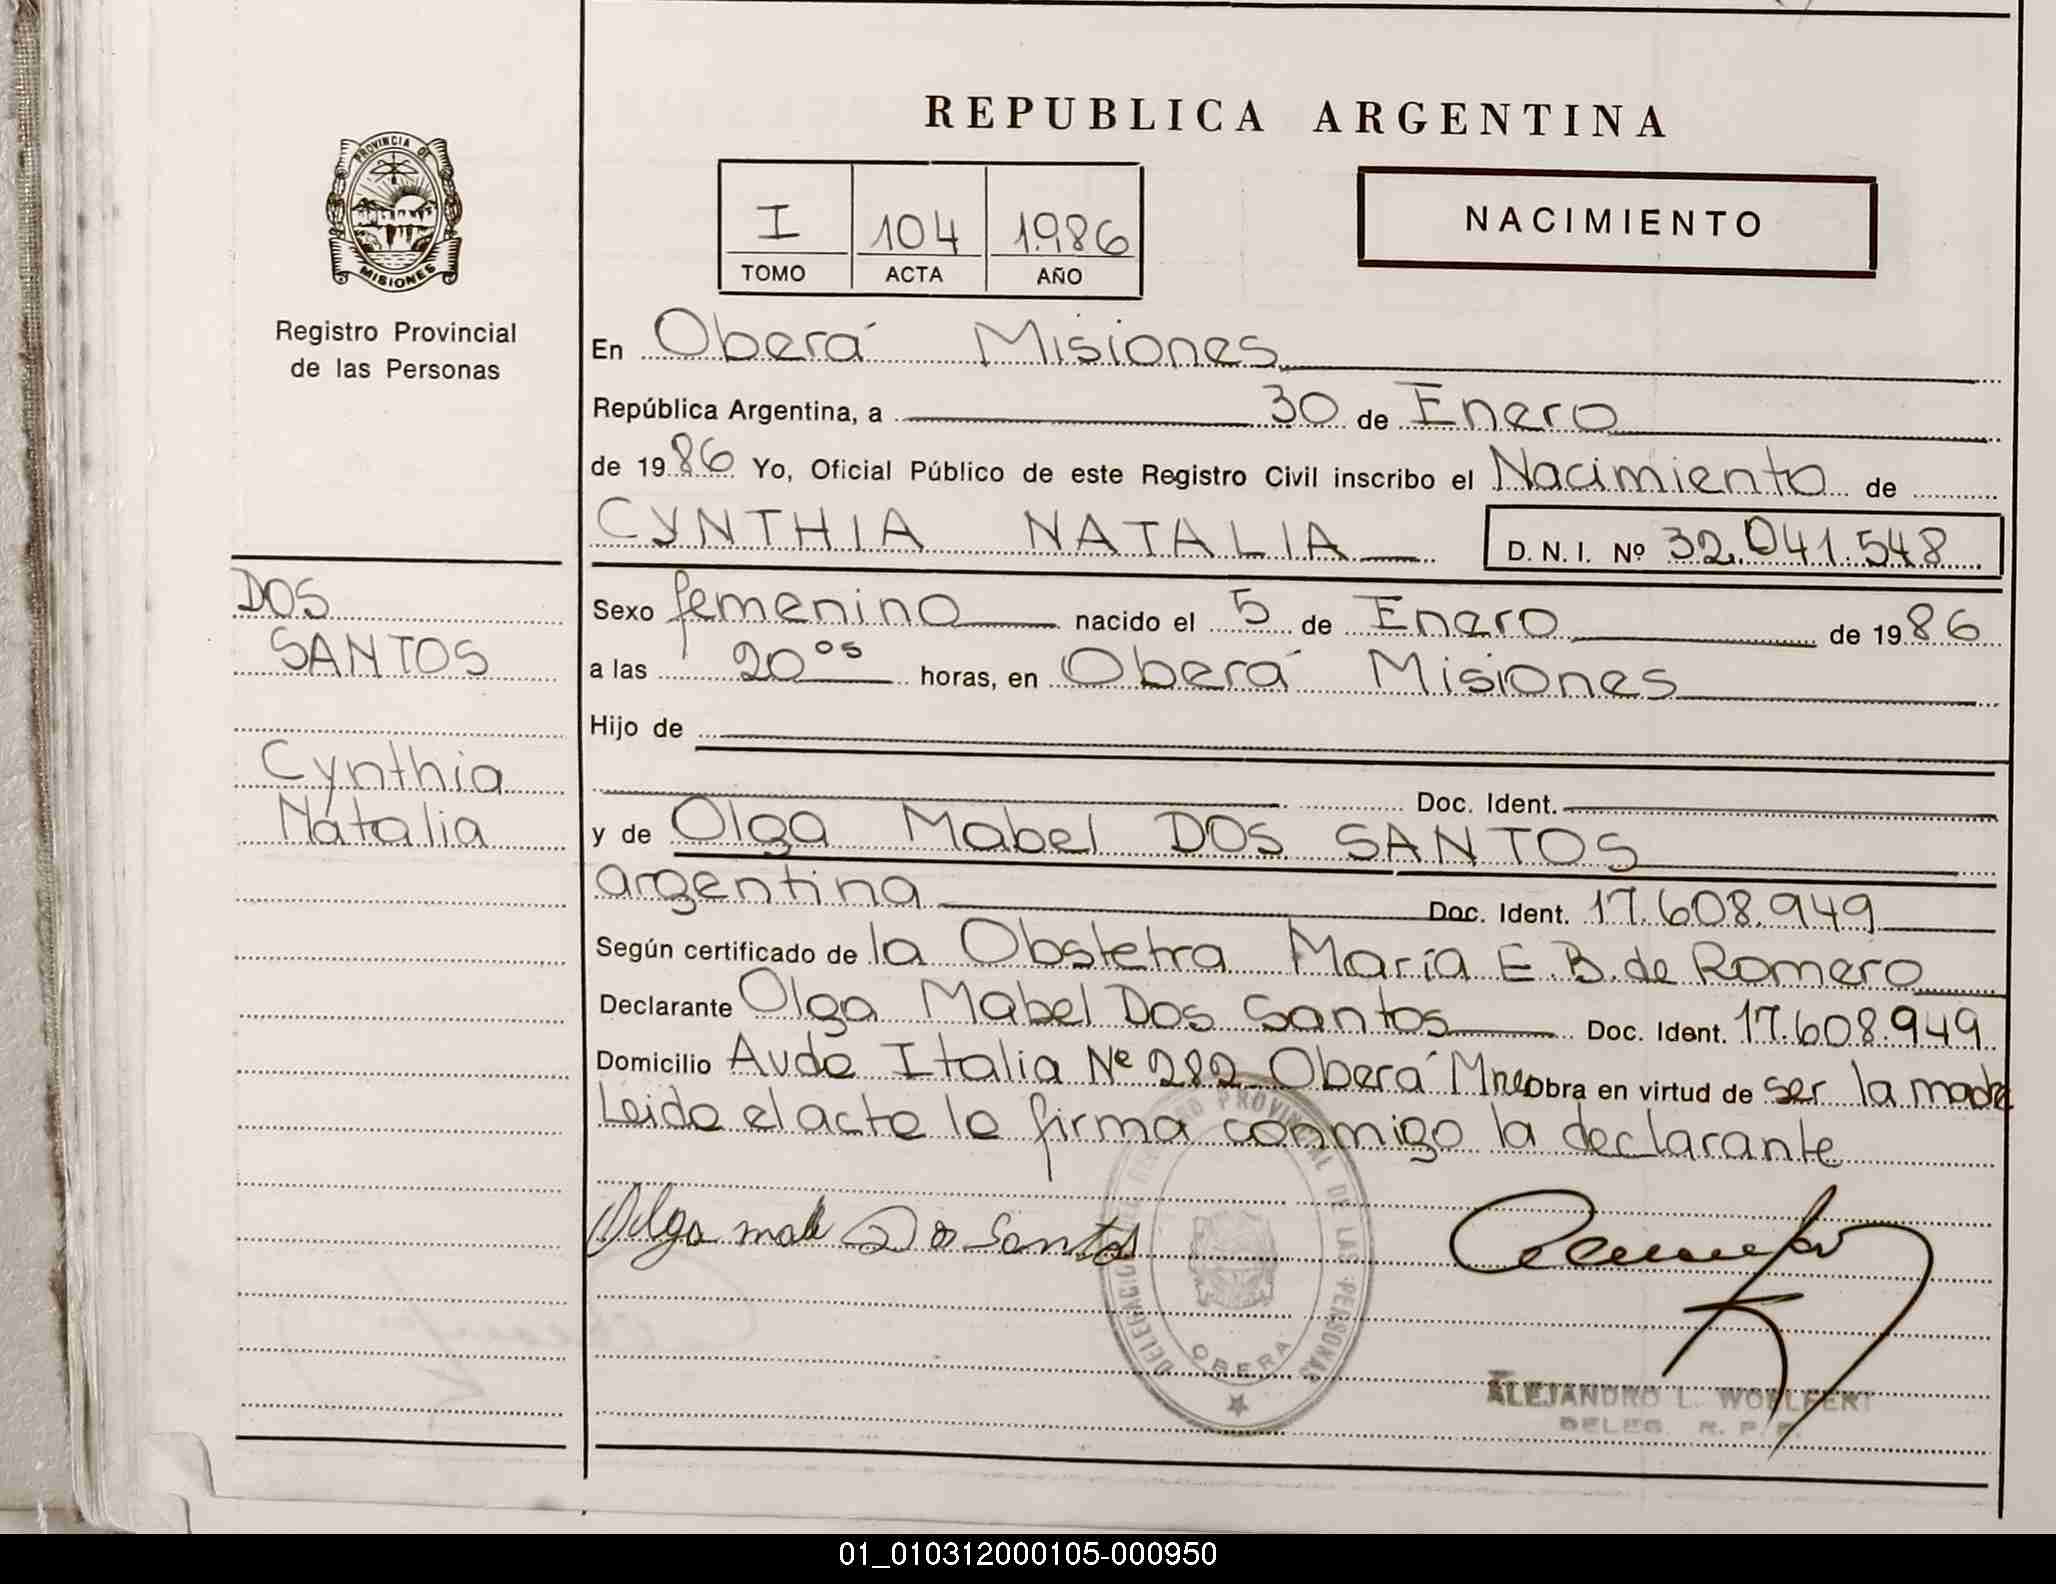 REPUBLICA ARGENTINA
PROVINCIA DE
MISIONES
Registro Provincial
de las Personas
I 104 1986
TOMO ACTA AÑO
NACIMIENTO
En Oberá Misiones
República Argentina, a 30 de Enero
de 1986 Yo, Oficial Público de este Registro Civil inscribo el Nacimiento de
CYNTHIA NATALIA D. N. I. Nº 32.041.548
DOS
SANTOS
Cynthia
Natalia
Sexo femenino nacido el 5 de Enero de 1986
a las 20 05 horas, en Oberá Misiones
Hijo de
Doc. Ident.
y de Olga Mabel DOS SANTOS
argentina Doc. Ident. 17.608.949
Según certificado de la Obstetra María E. B. de Romero
Declarante Olga Mabel Dos Santos Doc. Ident. 17.608.949
Domicilio Avda Italia Nº 282 Oberá Mnes obra en virtud de ser la madre
Leido el acta la firma conmigo la declarante
Olga Mabel Dos Santos
DELEGACION REGISTRO PROVINCIAL DE LAS PERSONAS
OBERA
ALEJANDRO L. WOELFERT
DELEG. R. P. P.
01_010312000105-000950